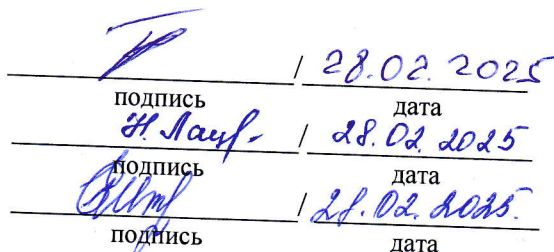 / 28.02.2025
подпись дата
/ 28.02.2025
подпись дата
/ 28.02.2025.
подпись дата